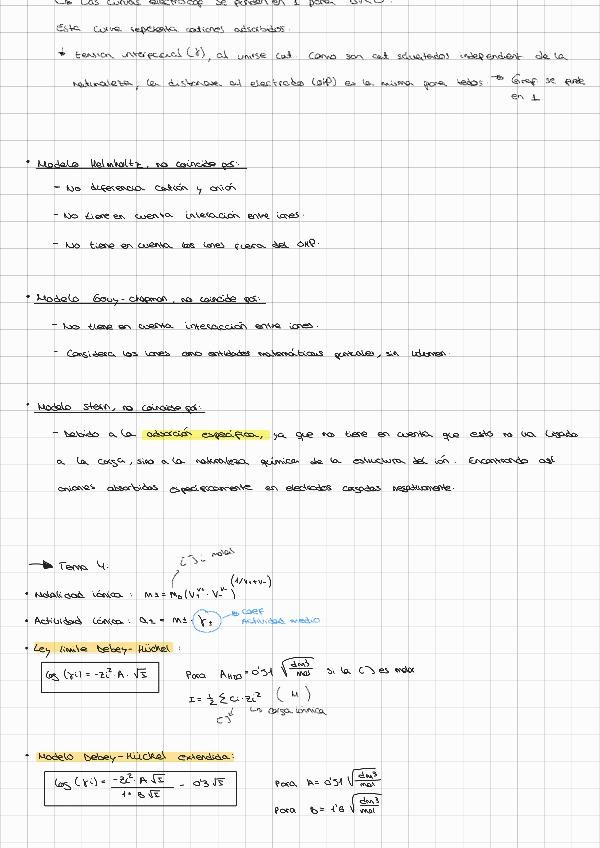 ↳ Las curvas electrocap se funden en 1 para
Esta curva representa cationes adsorbidos.
* tensión interfacial (γ), al unirse cat. Como son cat solvatados independient de la
naturaleza, la distancia al electrodo (OHP) es la misma para todos → Gref se funde
en 1
• Modelo Helmholtz, no coincide por:
- No diferencia catión y anión
- No tiene en cuenta interación entre iones.
- No tiene en cuenta los iones fuera del OHP.
• Modelo Gouy-chapman, no coincide por:
- No tiene en cuenta interacción entre iones.
- Considera los iones como entidades matemáticas puntuales, sin volumen.
• Modelo stern, no coincide por:
- Debido a la adsorción específica, ya que no tiene en cuenta que esto no va ligado
a la carga, sino a la naturaleza química de la estructura del ión. Encontrando así
aniones absorbidos específicamente en electrodos cargados negativamente.
→ Tema 4.
[ ]. molal
• Molalidad iónica: m± = m₀(V₊^V⁺ · V₋^V⁻)^(1/V₊+V₋)
• Actividad iónica: a± = m± · γ± → coef
Actividad medio
• Ley límite Debey-Hückel:
log (γi) = -zi² · A · √I
Para A_H2O = 0'51 √(dm³/mol) si la [ ] es molar
I = ½ Σ ci · zi² (M)
[ ] ↳ carga iónica
• Modelo Debey-Hückel extendida:
log (γi) = (-zi² · A √I)/(1 + B √I) - 0'3 √I
Para A = 0'51 √(dm³/mol)
Para B = 1'6 √(dm³/mol)